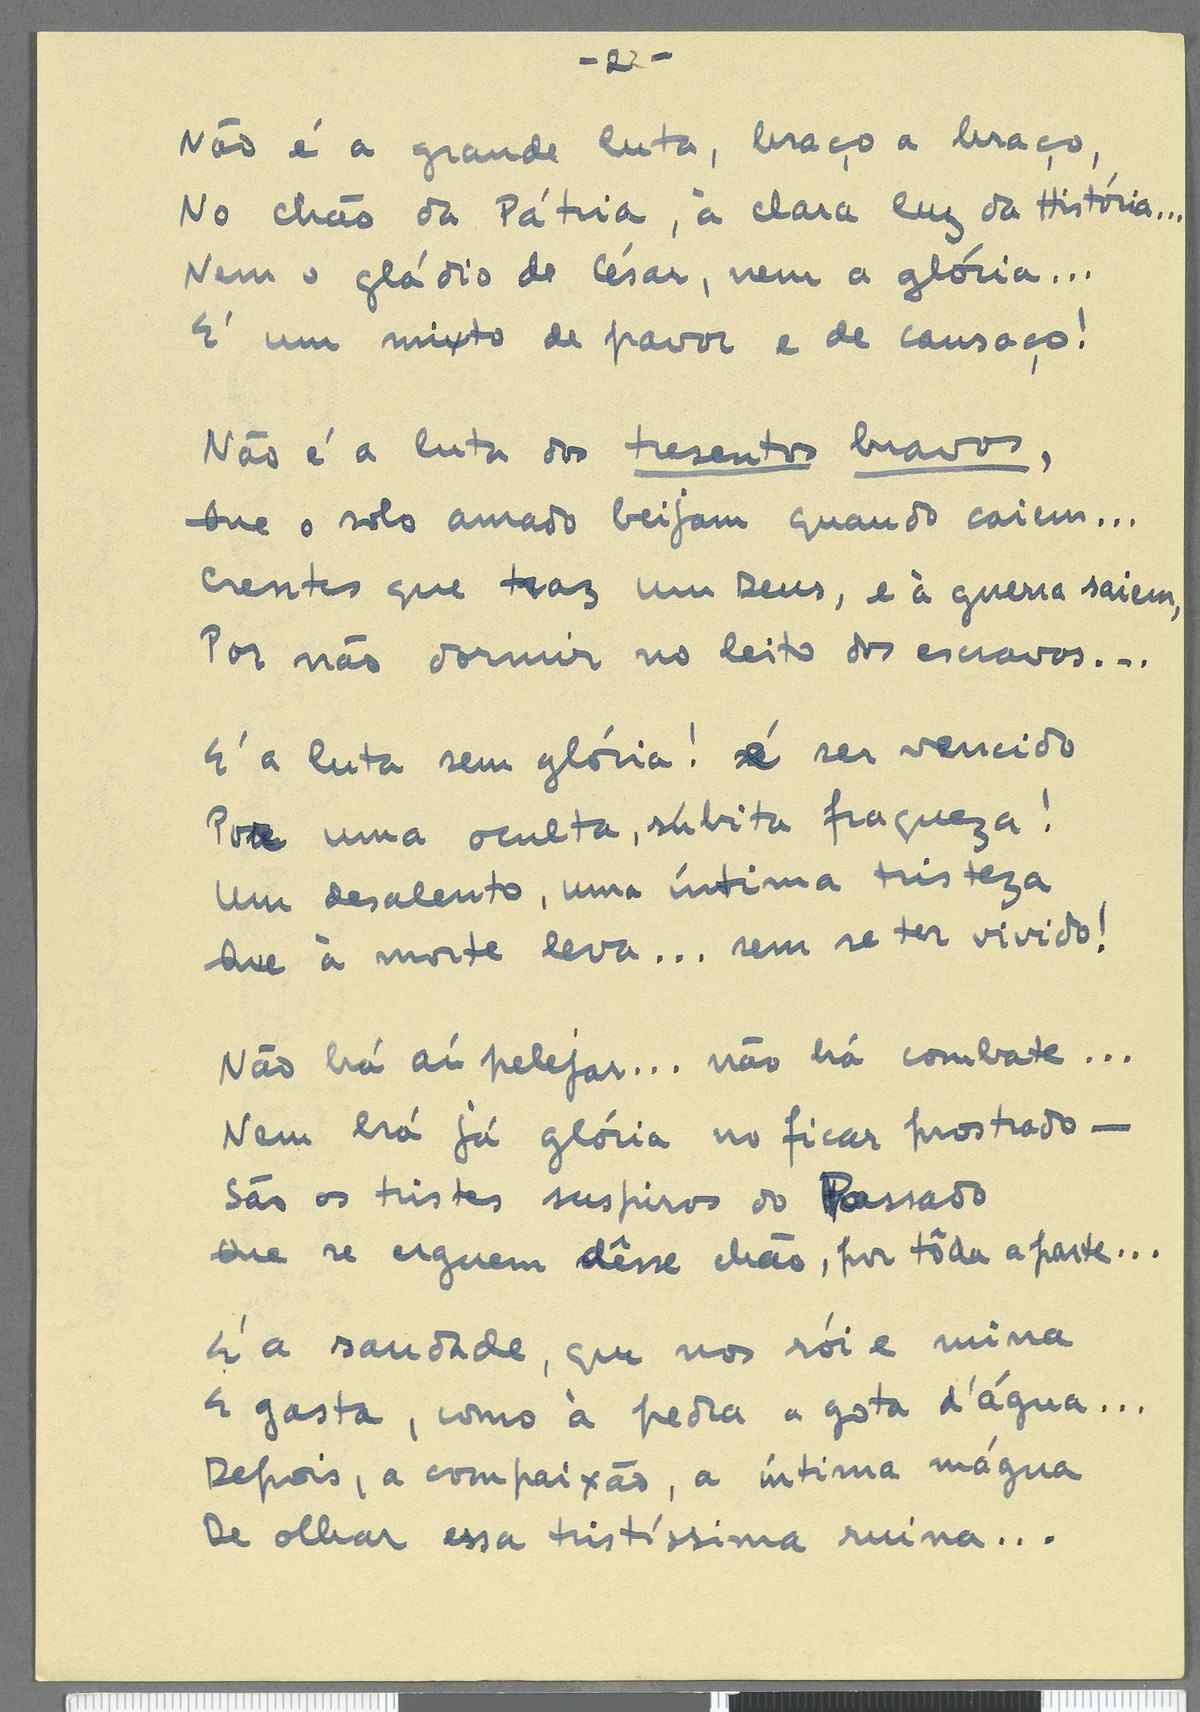 -2-
Não é a grande luta, braço a braço,
No chão da Pátria, à clara luz da História...
Nem o gládio de César, nem a glória...
E' um mixto de pavor e de cansaço!
Não é a luta dos tresentos bravos,
Que o solo amado beijam quando caiem...
Crentes que traz um Deus, e à guerra saiem,
Por não dormir no leito dos escravos...
E' a luta sem glória! é ser vencido
Por uma oculta, súbita fraqueza!
Um desalento, uma íntima tristeza
Que à morte leva... sem se ter vivido!
Não há aí pelejar... não há combate...
Nem há já glória no ficar prostrado —
São os tristes suspiros do Passado
Que se erguem dêsse chão, por tôda a parte...
E' a saudade, que nos rói e mina
E gasta, como à pedra a gota d'água...
Depois, a compaixão, a íntima mágua
De olhar essa tristíssima ruina...